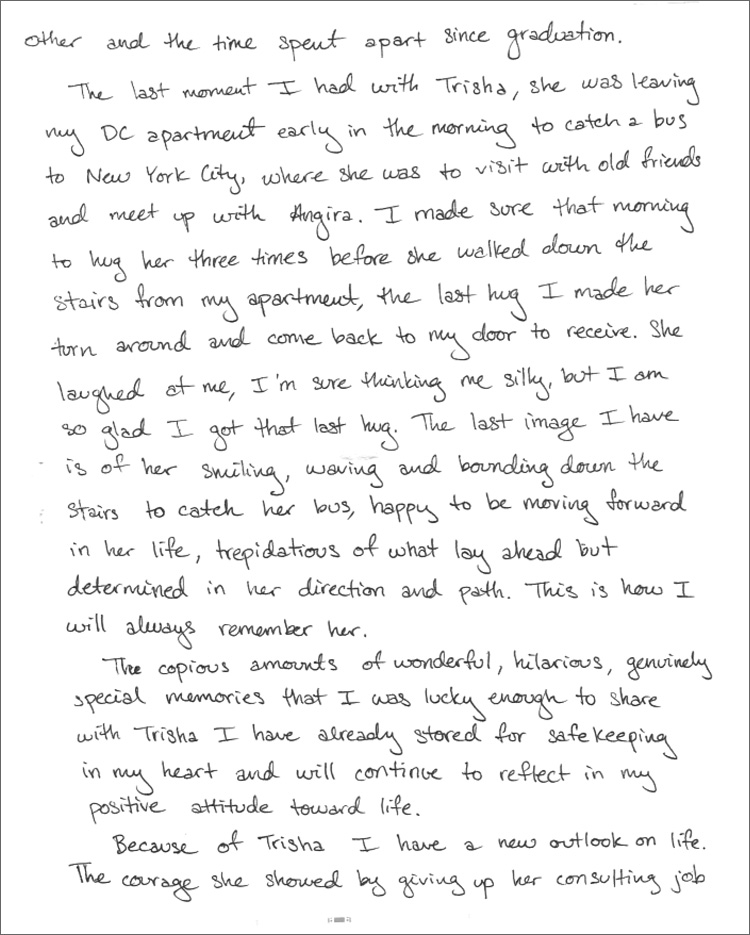 other and the time spent apart since graduation.
The last moment I had with Trisha, she was leaving
my DC apartment early in the morning to catch a bus
to New York City, where she was to visit with old friends
and meet up with Angira. I made sure that morning
to hug her three times before she walked down the
stairs from my apartment, the last hug I made her
turn around and come back to my door to receive. She
laughed at me, I'm sure thinking me silly, but I am
so glad I got that last hug. The last image I have
is of her smiling, waving and bounding down the
stairs to catch her bus, happy to be moving forward
in her life, trepidatious of what lay ahead but
determined in her direction and path. This is how I
will always remember her.
The copious amounts of wonderful, hilarious, genuinely
special memories that I was lucky enough to share
with Trisha I have already stored for safekeeping
in my heart and will continue to reflect in my
positive attitude toward life.
Because of Trisha I have a new outlook on life.
The courage she showed by giving up her consulting job